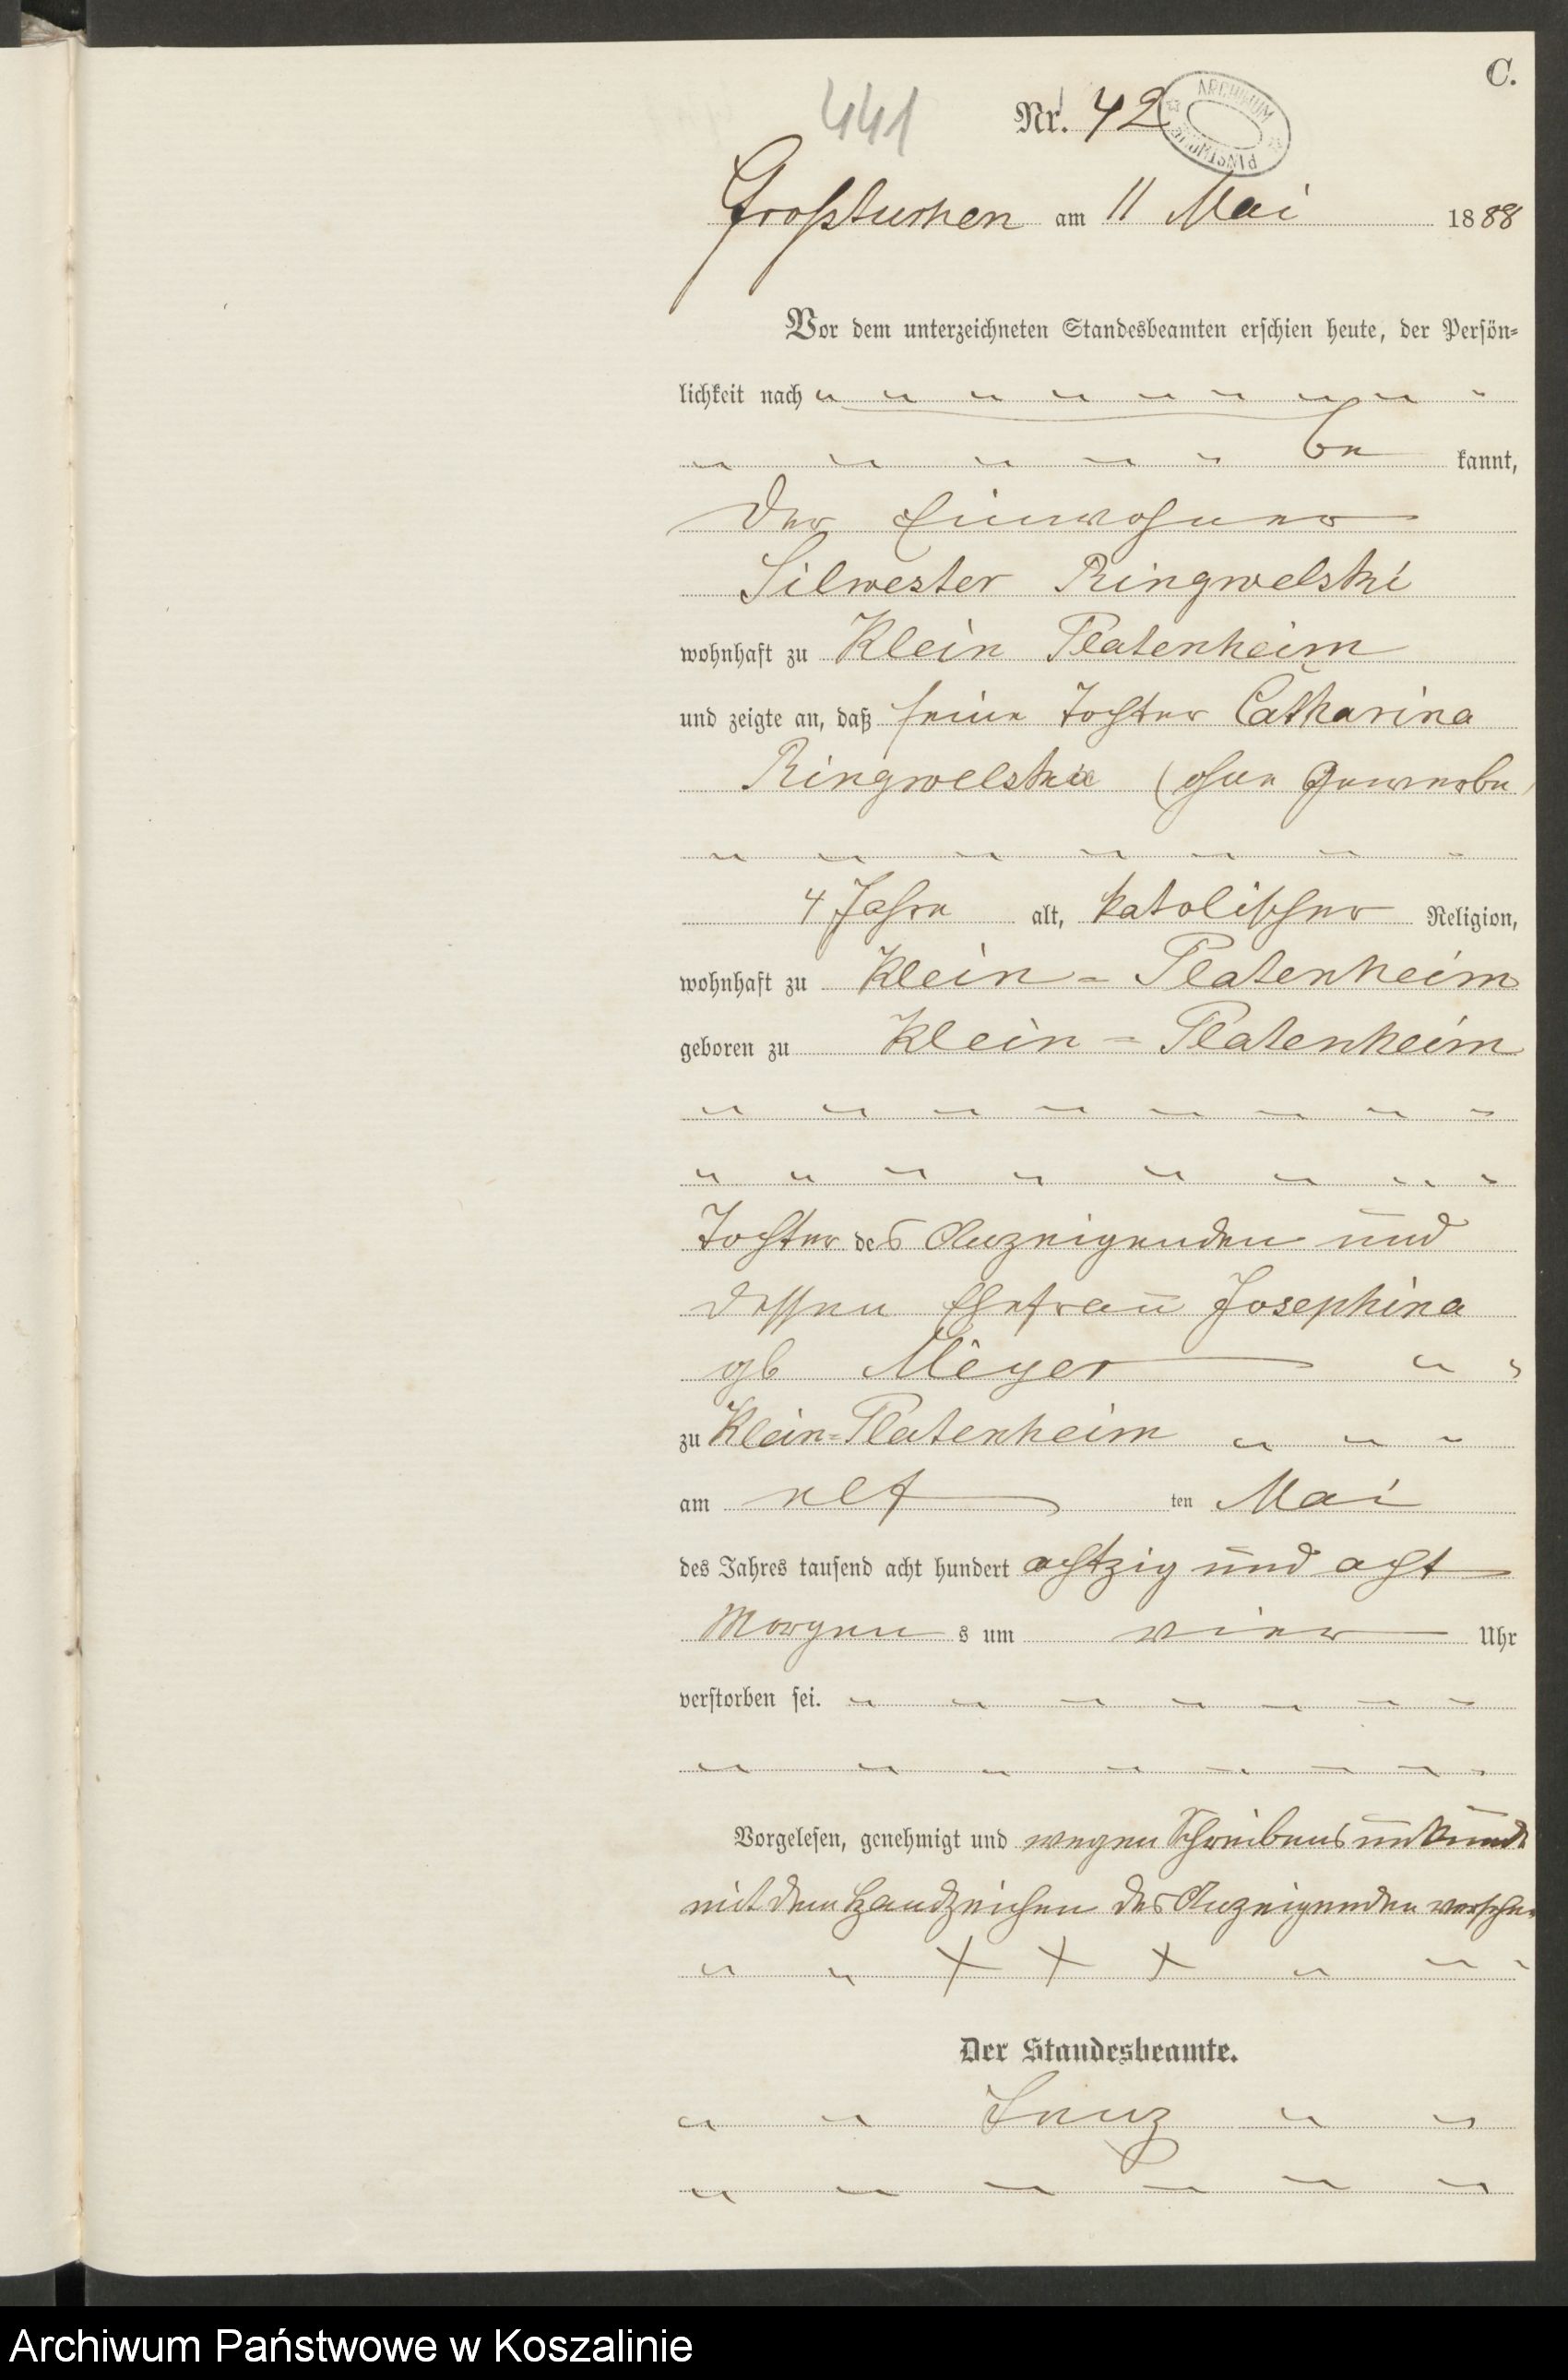 C.
441
Nr. 42
ARCHIWUM
Großtuchen am 11 Mai 1888
Vor dem unterzeichneten Standesbeamten erschien heute, der Persön-
lichkeit nach
be kannt,
der Einwohner
Silwester Ringwelski
wohnhaft zu Klein Platenheim
und zeigte an, daß seine Tochter Catharina
Ringwelski (ohne Gewerbe)
4 Jahre alt, katolischer Religion,
wohnhaft zu Klein-Platenheim
geboren zu Klein-Platenheim
Tochter des Anzeigenden und
dessen Ehefrau Josephina
gb Meyer
zu Klein-Platenheim
am elf ten Mai
des Jahres tausend acht hundert achtzig und acht
Morgen s um vier Uhr
verstorben sei.
Vorgelesen, genehmigt und wegen Schreibensunkunde
mit dem Handzeichen des Anzeigenden versehen
+ + +
Der Standesbeamte.
Archiwum Państwowe w Koszalinie